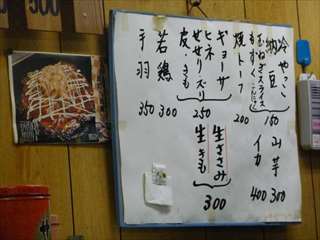 冷やっこ
納豆
玉ねぎスライス
もずく
150
山芋
300
イカ
400
焼トーフ
200
ギョーザ
ヒネ
せせりズリ
皮
きも
250
生ささみ
生きも
300
若鶏
300
手羽
350